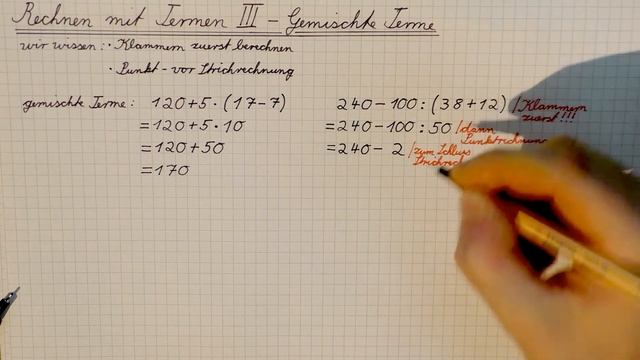 Rechnen mit Termen III - Gemischte Terme
wir wissen: · Klammern zuerst berechnen
· Punkt- vor Strichrechnung
gemischte Terme: 120+5·(17-7)
=120+5·10
=120+50
=170
240-100:(38+12) /Klammern zuerst!!!
=240-100:50 /dann Punktrechnung
=240-2 /zum Schluss